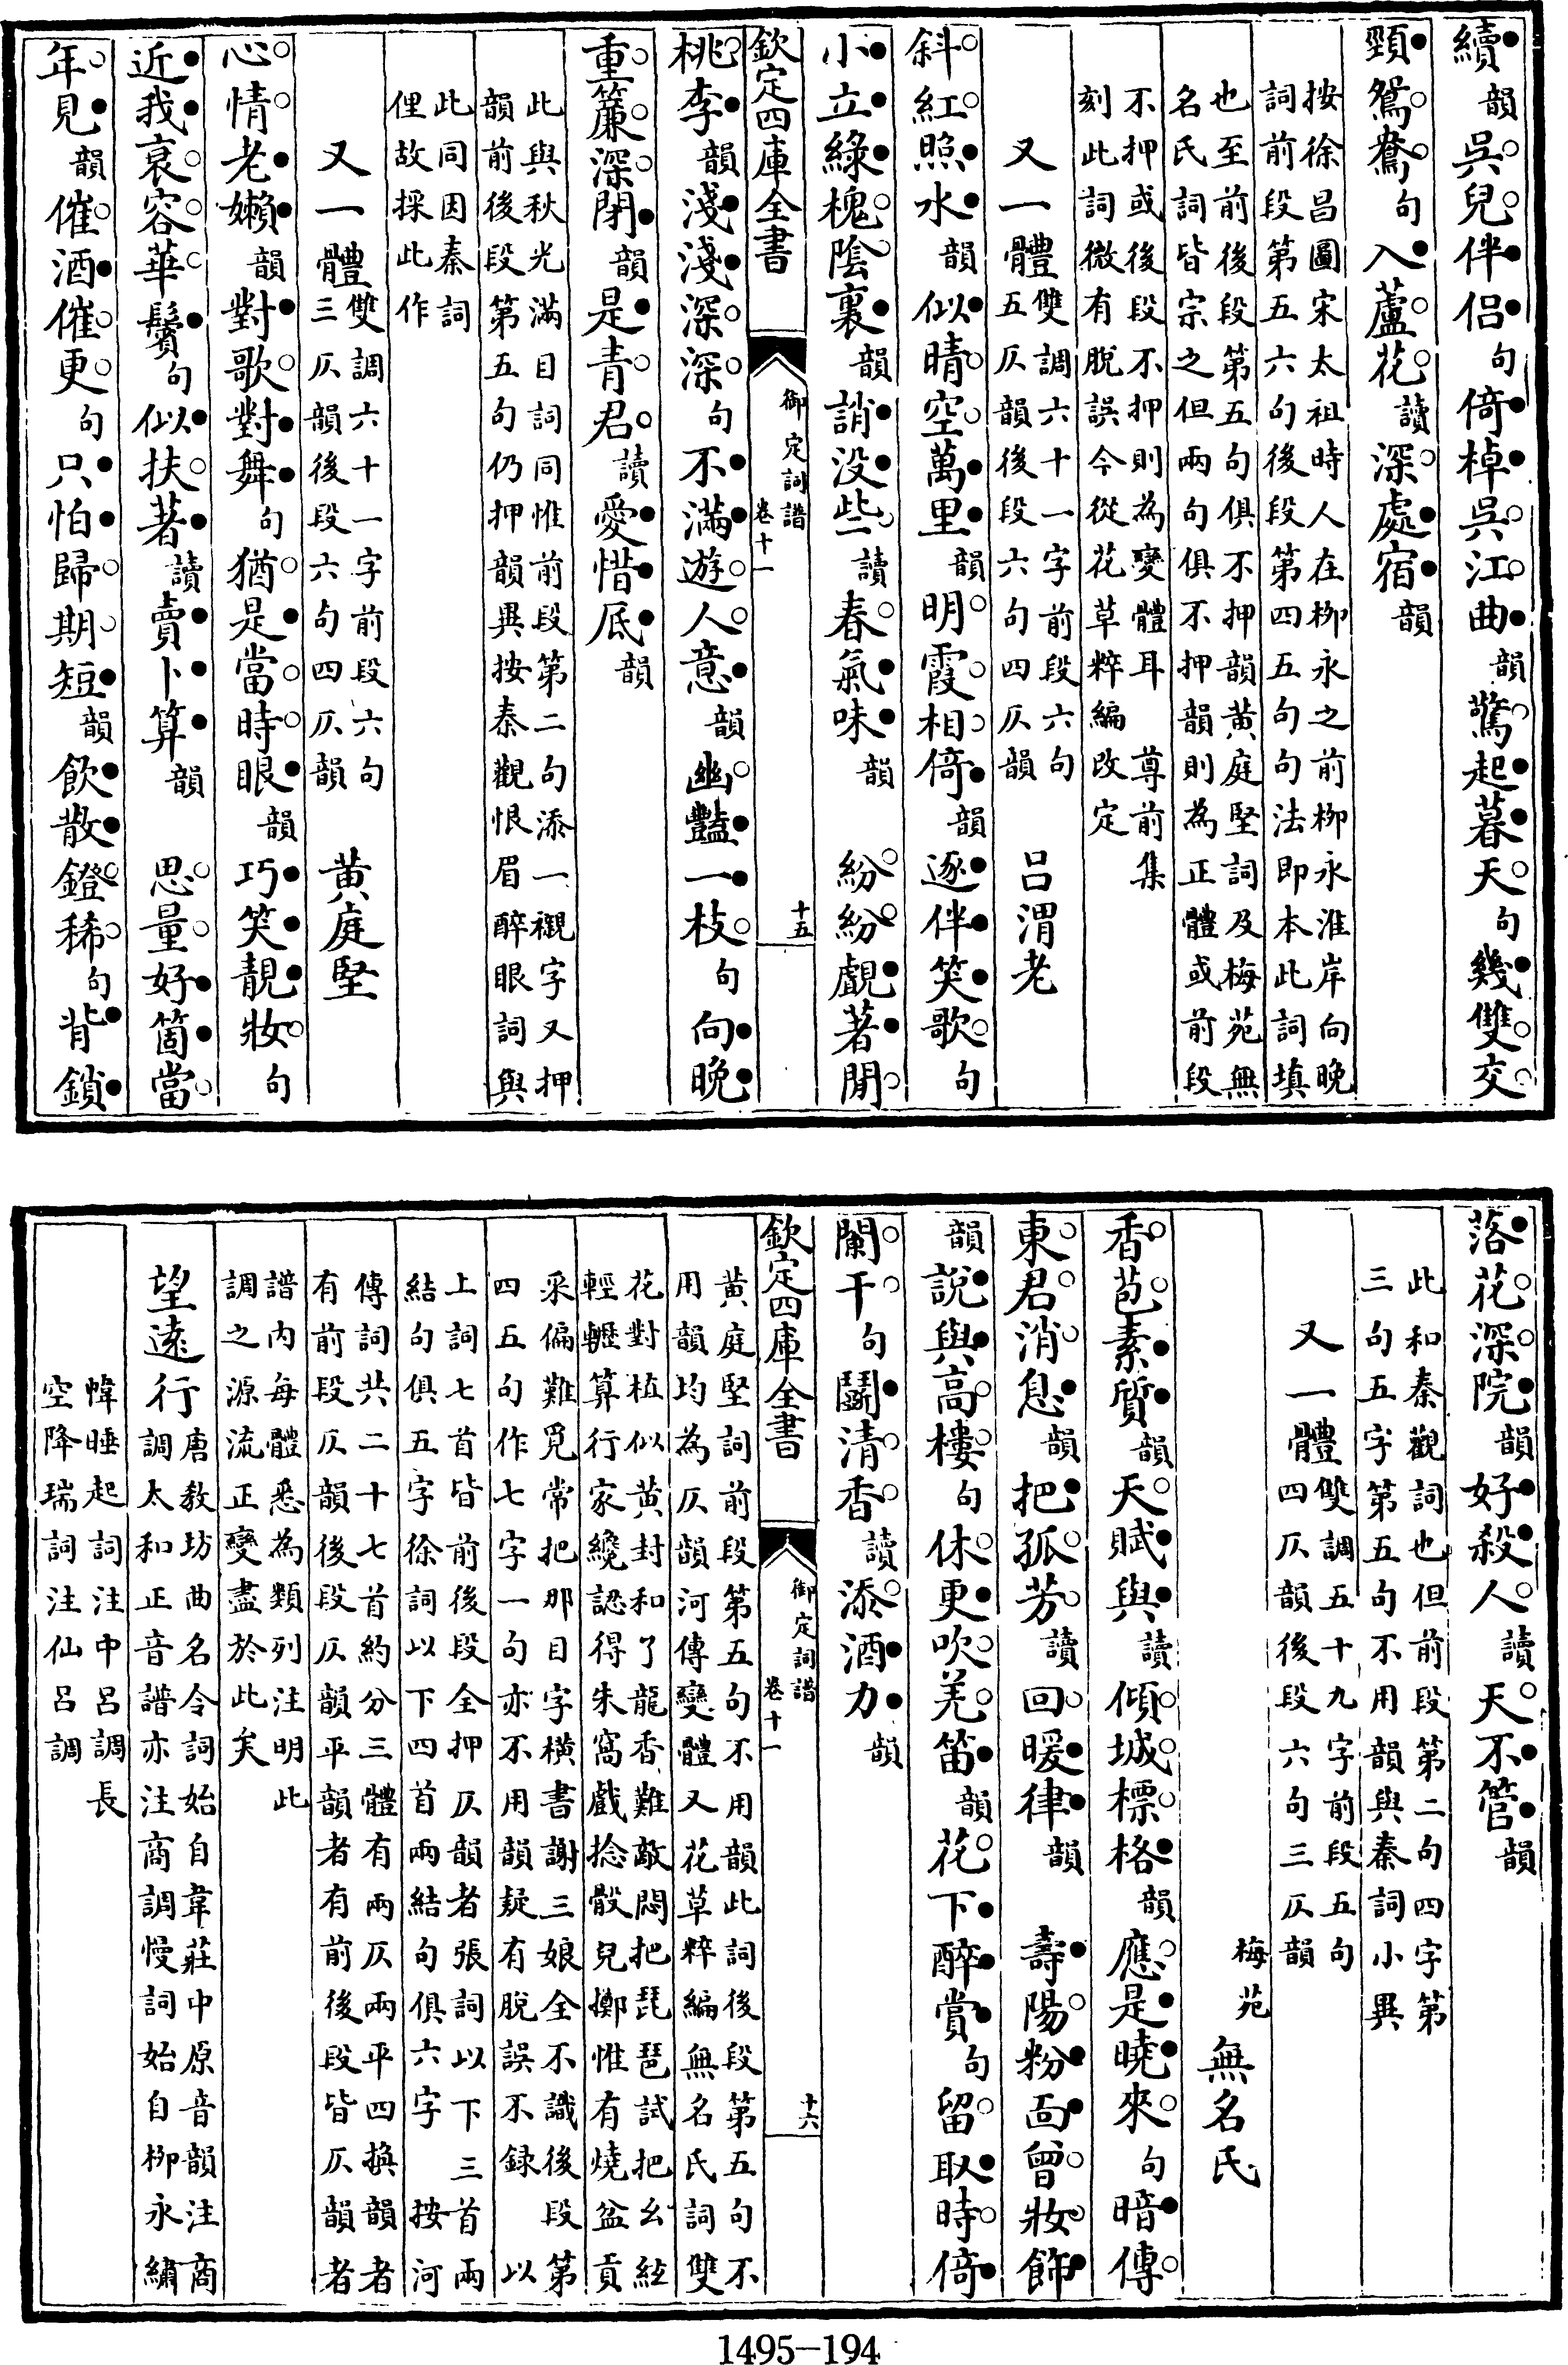 續韻吳兒伴侶句倚棹吳江曲韻驚起暮天句幾雙交
頸鴛鴦句入蘆花讀深處宿韻
按徐昌圖宋太祖時人在柳永之前柳永淮岸向晚
詞前段第五六句後段第四五句句法即本此詞填
也至前後段第五句俱不押韻黄庭堅詞及梅苑無
名氏詞皆宗之但兩句俱不押韻則為正體或前段
不押或後段不押則為變體耳 尊前集
刻此詞微有脫誤今從花草粹編改定
又一體雙調六十一字前段六句
五仄韻後段六句四仄韻 吕渭老
斜紅照水韻似晴空萬里韻明霞相倚韻逐伴笑歌句
小立綠槐陰裏韻誚没些讀春氣味韻 紛紛覷著閒
欽定四庫全書 御定詞譜 卷十一 十五
桃李韻淺淺深深句不滿遊人意韻幽豔一枝句向晚
重簾深閉韻是青君讀愛惜底韻
此與秋光滿目詞同惟前段第二句添一襯字又押
韻前後段第五句仍押韻異按秦觀恨眉醉眼詞與
此同因秦詞
俚故採此作
又一體雙調六十一字前段六句
三仄韻後段六句四仄韻 黄庭堅
心情老嬾韻對歌對舞句猶是當時眼韻巧笑靚妝句
近我衰容華鬢句似扶著讀賣卜算韻 思量好箇當
年見韻催酒催更句只怕歸期短韻飲散鐙稀句背鎖
落花深院韻好殺人讀天不管韻
此和秦觀詞也但前段第二句四字第
三句五字第五句不用韻與秦詞小異
又一體雙調五十九字前段五句
四仄韻後段六句三仄韻
梅苑 無名氏
香苞素質韻天賦與讀傾城標格韻應是曉來句暗傳
東君消息韻把孤芳讀回暖律韻 壽陽粉面曾妝飾
韻說與高樓句休更吹羌笛韻花下醉賞句留取時倚
闌干句鬭清香讀添酒力韻
欽定四庫全書 御定詞譜 卷十一 十六
黄庭堅詞前段第五句不用韻此詞後段第五句不
用韻均為仄韻河傳變體又花草粹編無名氏詞雙
花對植似黄封和了龍香難敵悶把琵琶試把幺絃
輕轣算行家纔認得朱窩戲捻骰兒擲惟有燒盆貢
采偏難覓常把那目字横書謝三娘全不識後段第
四五句作七字一句亦不用韻疑有脫誤不録 以
上詞七首皆前後段全押仄韻者張詞以下三首兩
結句俱五字徐詞以下四首兩結句俱六字 按河
傳詞共二十七首約分三體有兩仄兩平四換韻者
有前段仄韻後段仄韻平韻者有前後段皆仄韻者
譜内每體悉為類列注明此
調之源流正變盡於此矣
望遠行唐教坊曲名令詞始自韋莊中原音韻注商
調太和正音譜亦注商調慢詞始自柳永繡
幃睡起詞注中吕調長
空降瑞詞注仙吕調
1495-194